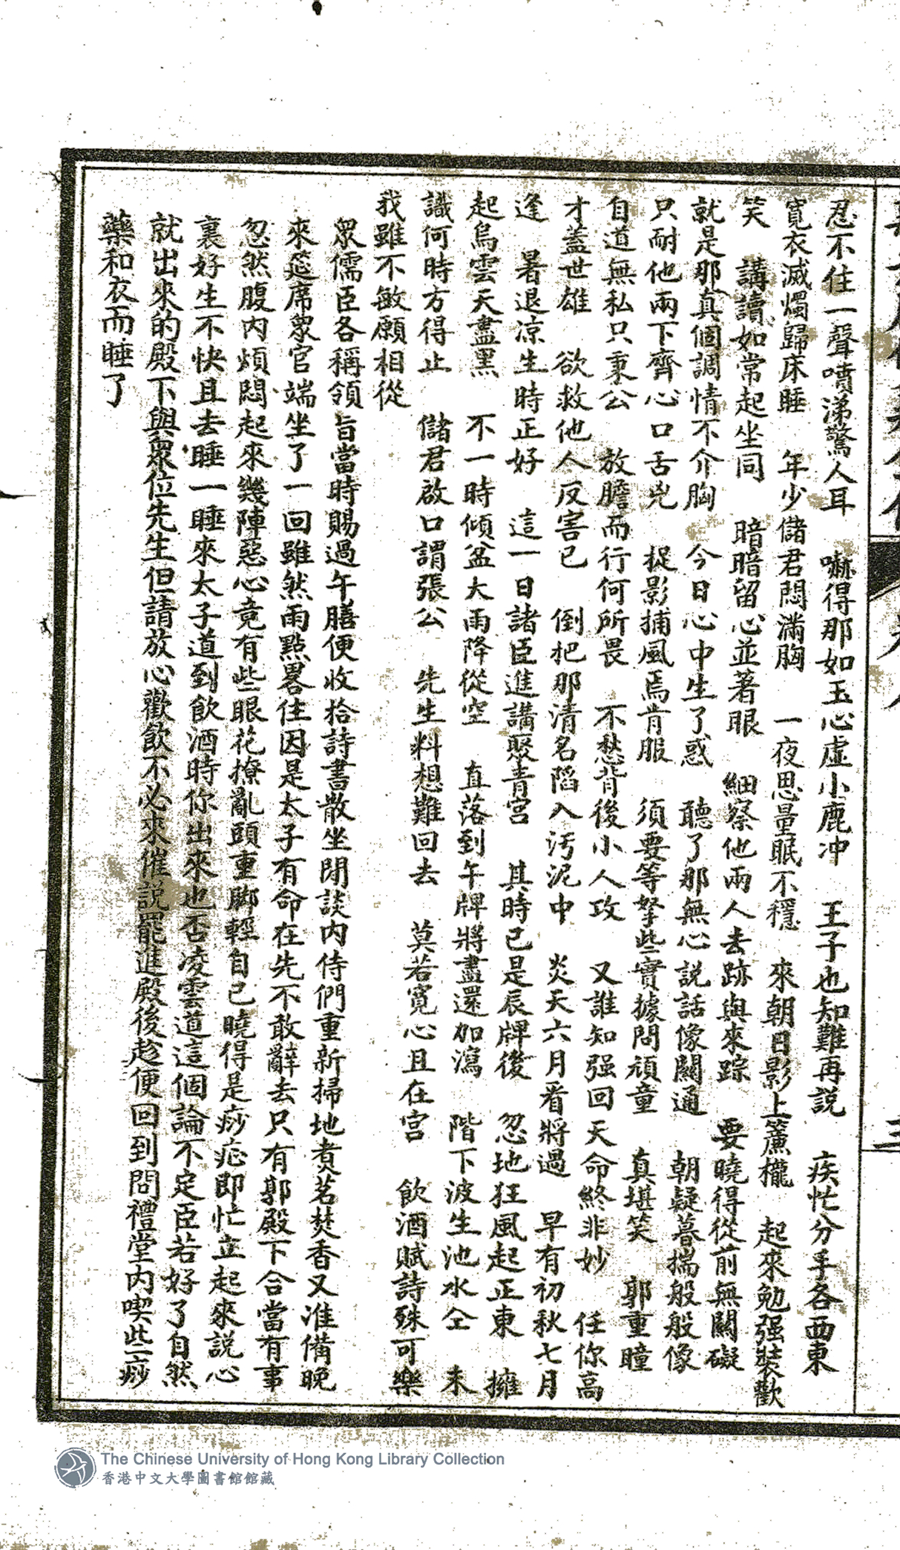 忍不住一聲噴涕驚人耳　嚇得那如玉心虛小鹿冲　王子也知難再説　疾忙分手各西東
寬衣滅燭歸床睡　年少儲君悶滿胸　一夜思量眠不穩　來朝日影上簾櫳　起來勉强裝歡
笑　講讀如常起坐同　暗暗留心並著眼　細察他兩人去跡與來踪　要曉得從前無關礙
就是那真個調情不介胸　今日心中生了惑　聽了那無心說話像關通　朝疑暮揣般般像
只耐他兩下齊心口舌兇　捉影捕風焉肯服　須要等拏些實據問頑童　真堪笑　郭重瞳
自道無私只秉公　放膽而行何所畏　不愁背後小人攻　又誰知强回天命終非妙　任你高
才蓋世雄　欲救他人反害已　倒把那清名陷入汚泥中　炎天六月看將過　早有初秋七月
逢　暑退凉生時正好　這一日諸臣進講聚青宫　其時已是辰牌後　忽地狂風起正東　擁
起烏雲天盡黑　不一時傾盆大雨降從空　直落到午牌將盡還加瀉　階下波生池水仝　未
識何時方得止　儲君啟口謂張公　先生料想難回去　莫若寬心且在宫　飲酒賦詩殊可樂
我雖不敏願相從
衆儒臣各稱領旨當時賜過午膳便收拾詩書散坐閒談内侍們重新掃地煑茗焚香又准備晚
來筵席衆官端坐了一回雖然雨點畧住因是太子有命在先不敢辭去只有郭殿下合當有事
忽然腹内煩悶起來幾陣惡心竟有些眼花撩亂頭重脚輕自已曉得是痧症即忙立起來説心
裏好生不快且去睡一睡來太子道到飲酒時你出來也否凌雲道這個論不定臣若好了自然
就出來的殿下與衆位先生但請放心歡飲不必來催説罷進殿後趁便回到問禮堂内喫些痧
藥和衣而睡了
The Chinese University of Hong Kong Library Collection
香港中文大學圖書館館藏